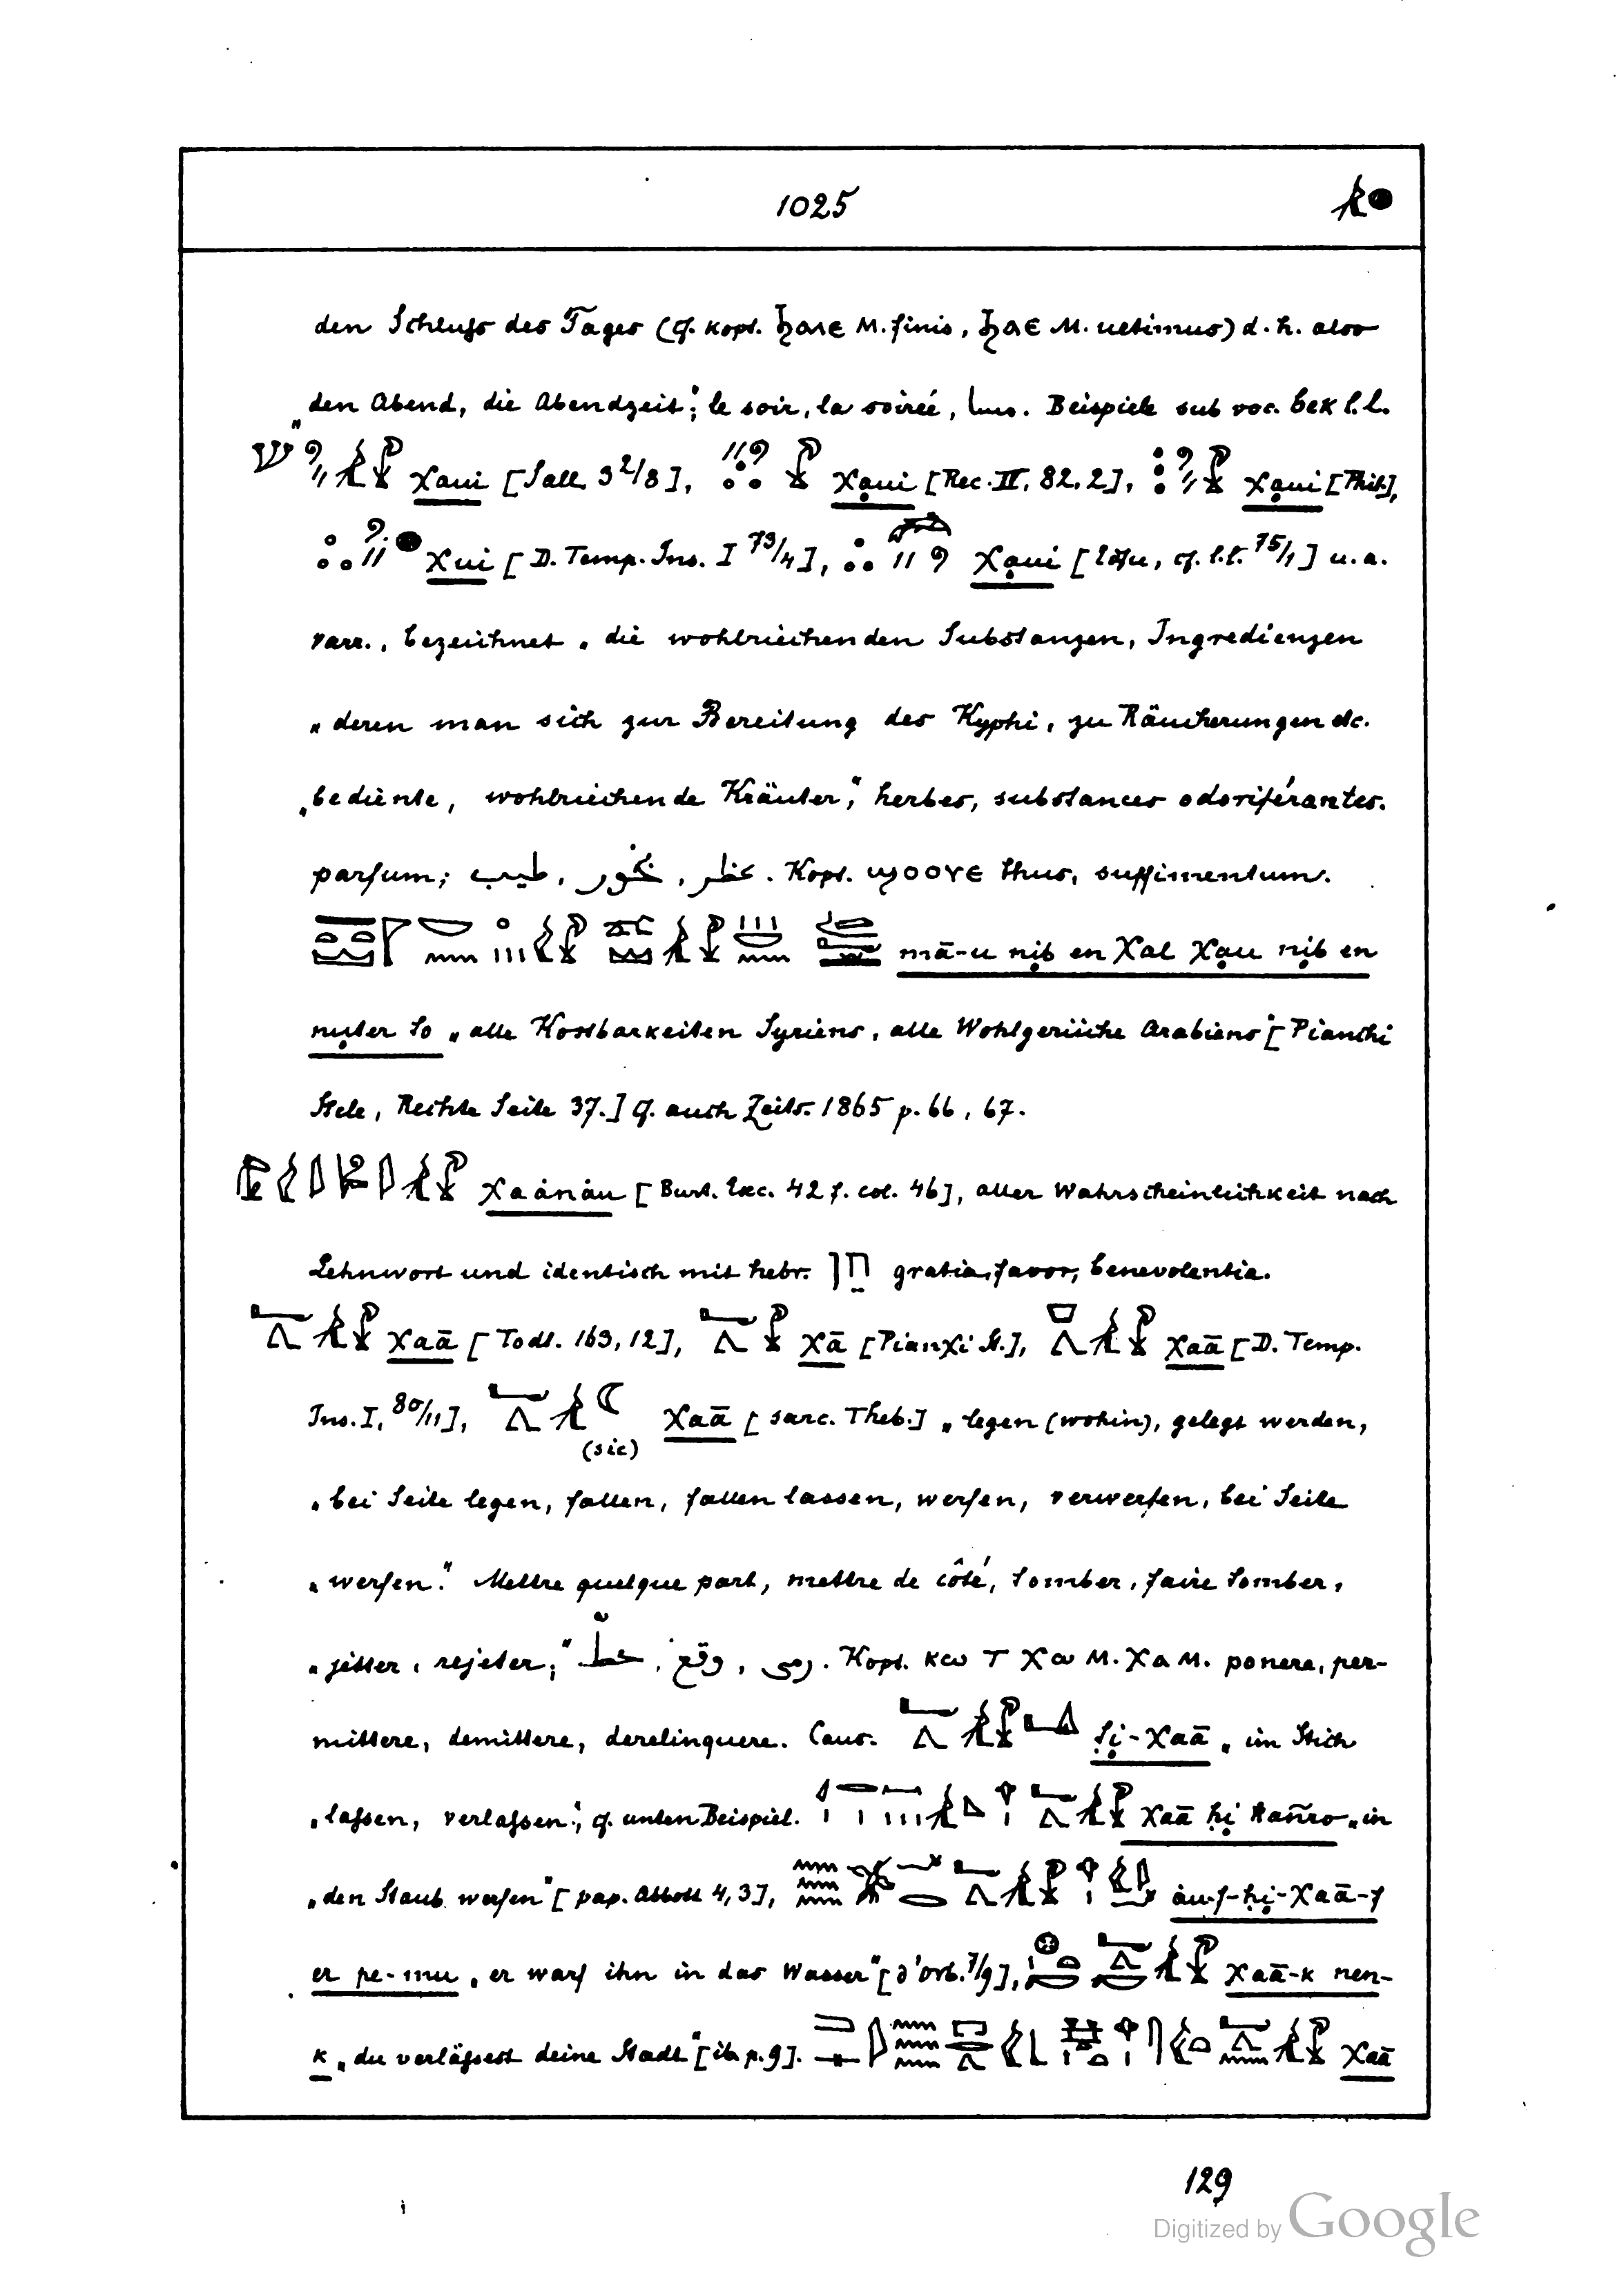 1025
den Schluss des Tages (cf. kopt. ϧⲁⲓⲉ M. finis, ϧⲁⲉ M. ultimus) d. h. also
„den Abend, die Abendzeit“; le soir, la soireé, مساء. Beispiele sub voc. bek l.l.
χaui [Sall. 3 2/8], χaui [Rec. IV, 82, 2], χaui [Phil.],
χui [D. Temp. Ins. I 73/4], χaui [Edfu, cf. l.l. 75/1] u. a.
varr., bezeichnet „die wohlriechenden Substanzen, Ingredienzen
„deren man sich zur Bereitung des Kyphi, zu Räucherungen etc.
„bediente, wohlriechende Kräuter“, herbes, substances odoriférantes.
parfum; طيب, بخور, عطر. Kopt. ϣⲟⲟⲩⲉ thus, suffimentum.
mā-u nib en χal χau nib en
nuter to „alle Kostbarkeiten Syriens, alle Wohlgerüche Arabiens“ [Pianchi
Stele, Rechte Seite 37.] cf. auch Zeits. 1865 p. 66, 67.
χaánáu [Burt. Exc. 42 f. col. 46], aller Wahrscheinlichkeit nach
Lehnwort und identisch mit hebr. חן gratia, favor, benevolentia.
χaā [Todt. 163, 12], χā [Pianχi St.], χaā [D. Temp.
Ins. I, 80/11], χaā [sarc. Theb.] „legen (wohin), gelegt werden,
(sic)
„bei Seite legen, fallen, fallen lassen, werfen, verwerfen, bei Seite
„werfen.“ Mettre quelque part, mettre de côté, tomber, faire tomber,
„jetter, rejeter;“ حطّ, وقع, رمى. Kopt. ⲕⲱ T ⲭⲱ M. ⲭⲁ M. ponere, per-
mittere, demittere, derelinquere. Caus. ṭi-χaā „im Stich
„lassen, verlassen“; cf. unten Beispiel. χaā ḥi kañro „in
„den Staub werfen“ [pap. Abbott 4, 3], áu-f-ḥi-χaā-f
er pe-mu „er warf ihn in das Wasser“ [d'Orb. 7/9], χaā-k nen-
k „du verlässest deine Stadt“ [ib. p. 9]. χaā
129
Digitized by Google